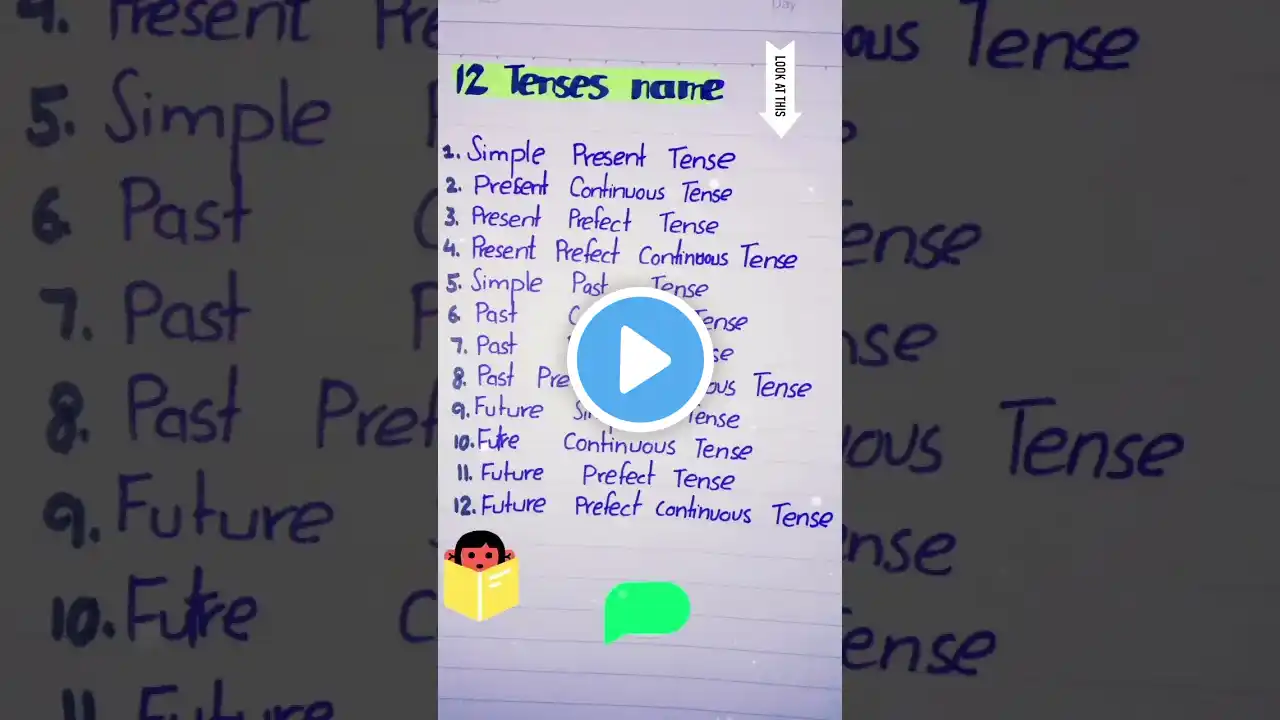 Day
LOOK AT THIS
12 Tenses name
1. Simple Present Tense
2. Present Continuous Tense
3. Present Prefect Tense
4. Present Prefect Continuous Tense
5. Simple Past Tense
6. Past Tense
7. Past
8. Past Tense
9. Future Tense
10. Futre Continuous Tense
11. Future Prefect Tense
12. Future Prefect Continuous Tense